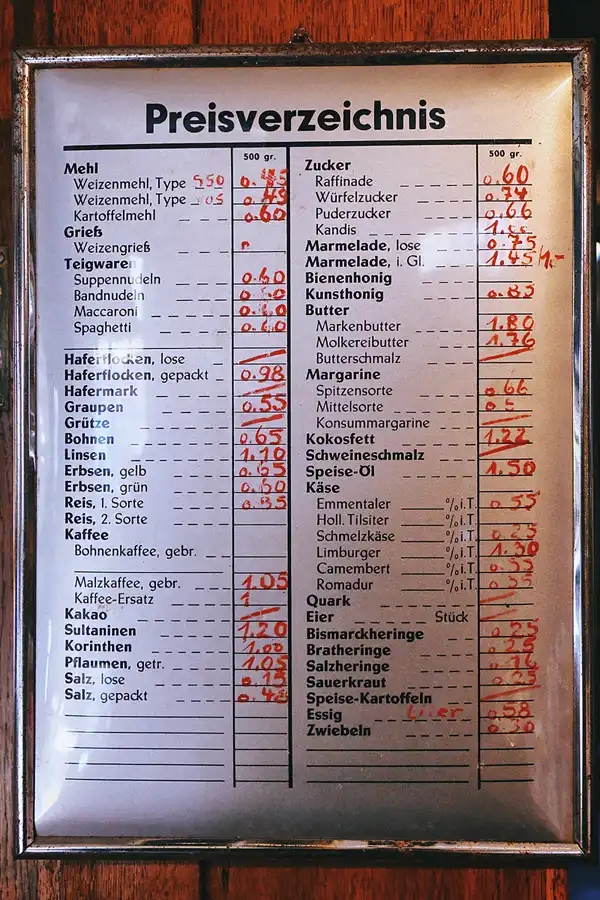 Preisverzeichnis
500 gr.
Mehl
Weizenmehl, Type 550 0.45
Weizenmehl, Type 0.49
Kartoffelmehl 0.60
Grieß
Weizengrieß
Teigwaren
Suppennudeln 0.60
Bandnudeln
Maccaroni
Spaghetti
Haferflocken, lose
Haferflocken, gepackt 0.98
Hafermark
Graupen 0.55
Grütze
Bohnen 0.65
Linsen 1.10
Erbsen, gelb 0.65
Erbsen, grün 0.60
Reis, I. Sorte 0.85
Reis, 2. Sorte
Kaffee
Bohnenkaffee, gebr.
Malzkaffee, gebr. 1.05
Kaffee-Ersatz
Kakao
Sultaninen 1.20
Korinthen 1.00
Pflaumen, getr. 1.05
Salz, lose 0.15
Salz, gepackt
500 gr.
Zucker
Raffinade 0.60
Würfelzucker 0.74
Puderzucker 0.66
Kandis
Marmelade, lose 0.75
Marmelade, i. Gl. 1.45 /1.-
Bienenhonig
Kunsthonig 0.85
Butter
Markenbutter 1.80
Molkereibutter 1.76
Butterschmalz
Margarine
Spitzensorte 0.66
Mittelsorte
Konsummargarine
Kokosfett 1.22
Schweineschmalz
Speise-Öl 1.50
Käse
Emmentaler % i.T. 0.55
Holl. Tilsiter % i.T.
Schmelzkäse % i.T. 0.25
Limburger % i.T. 1.30
Camembert % i.T. 0.55
Romadur % i.T. 0.55
Quark
Eier Stück
Bismarckheringe 0.25
Bratheringe 0.25
Salzheringe 0.16
Sauerkraut 0.25
Speise-Kartoffeln
Essig Liter 0.58
Zwiebeln 0.30